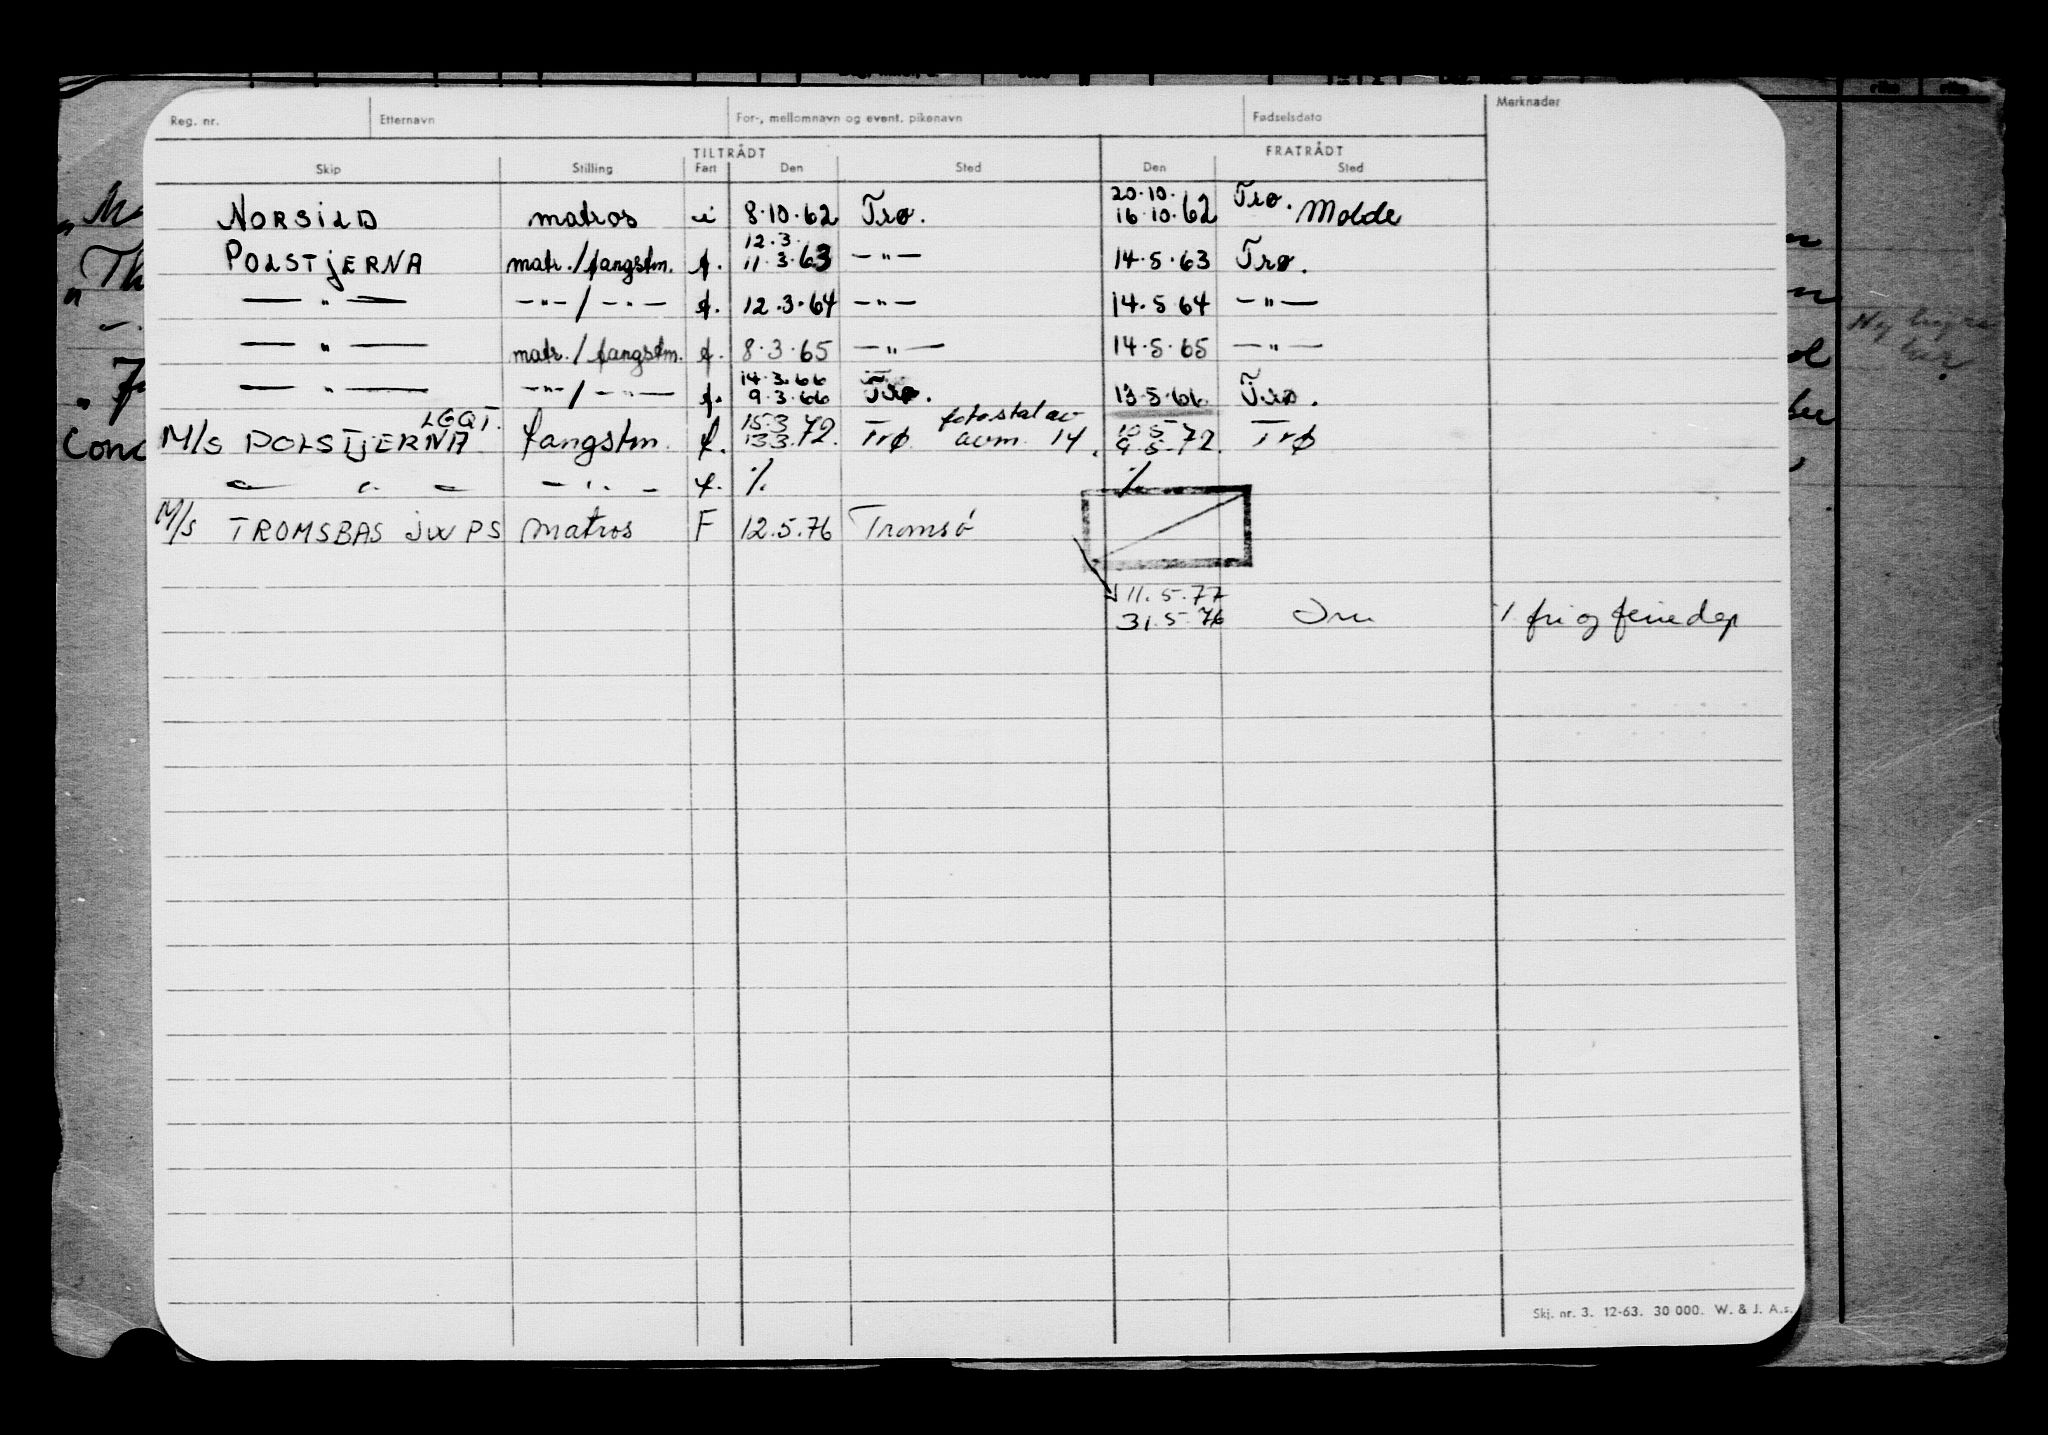 Reg. nr. Etternavn For-, mellomnavn og event. pikenavn Fødselsdato Merknader
TILTRÅDT FRATRÅDT
Skip Stilling Fart Den Sted Den Sted
20.10. Trø.
NORSILD matros i 8.10.62 Trø. 16.10.62 Molde
12.3.
POLSTJERNA matr./fangstm. f. 11.3.63 —"— 14.5.63 Trø.
— " — —"—/—"— f. 12.3.64 —"— 14.5.64 —"—
— " — matr./fangstm. f. 8.3.65 —"— 14.5.65 —"—
14.3.66
— " — —"—/—"— f. 9.3.66 Trø. 13.5.66 Trø.
LGQT. 15.3 fotostat av 10.5
M/S POLSTJERNA fangstm. f. 13.3.72. Trø avm. 14. 9.5.72. Trø
— " — —"— f. % %
M/S TROMSBAS JWPS matros F 12.5.76 Tromsø
11.5.77
31.5.76 fri og feriedep
Skj. nr. 3. 12-63. 30 000. W. & J. A.s.
Ny